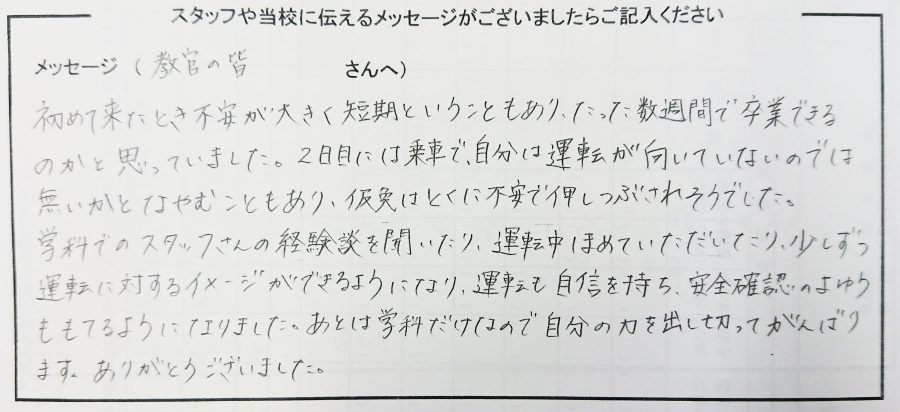 スタッフや当校に伝えるメッセージがございましたらご記入ください
メッセージ （教官の皆 さんへ）
初めて来たとき不安が大きく短期ということもあり、たった数週間で卒業できる
のかと思っていました。2日目には乗車で、自分は運転が向いていないのでは
無いかとなやむこともあり、仮免はとくに不安で押しつぶされそうでした。
学科でのスタッフさんの経験談を聞いたり、運転中ほめていただいたり、少しずつ
運転に対するイメージができるようになり、運転も自信を持ち、安全確認のよゆう
ももてるようになりました。あとは学科だけなので自分の力を出し切ってがんばり
ます。ありがとうございました。